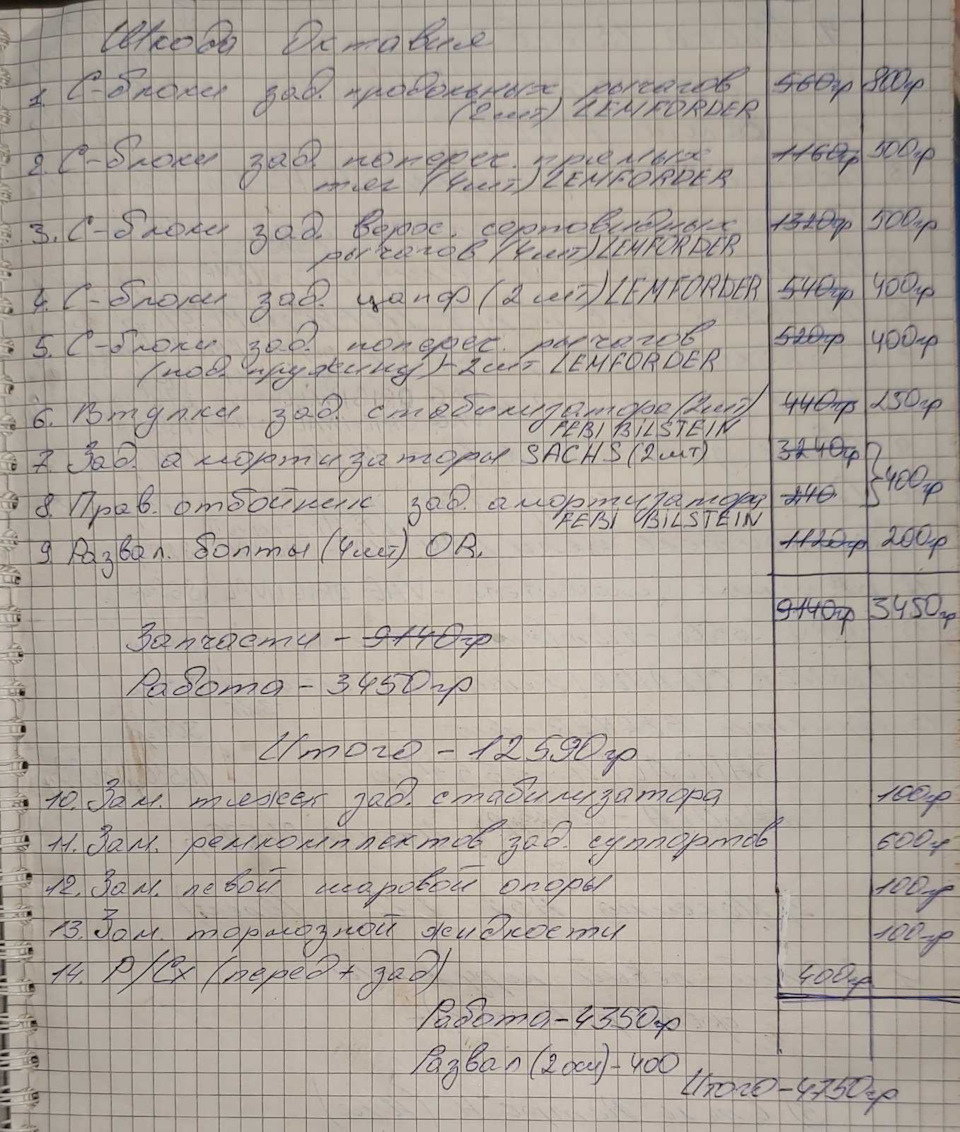 Шкода Октавия
1. С-блоки зад. продольных рычагов 560гр 800гр
(2шт) LEMFORDER
2. С-блоки зад. поперек. прямых 1160гр 500гр
тяг (4шт) LEMFORDER
3. С-блоки зад. верхн. серповидных 1320гр 500гр
рычагов (4шт) LEMFORDER
4. С-блоки зад. цапф (2шт) LEMFORDER 540гр 400гр
5. С-блоки зад. поперек. рычагов 520гр 400гр
(под пружину) - 2шт LEMFORDER
6. Втулки зад. стабилизатора (2шт) 440гр 250гр
FEBI BILSTEIN
7. Зад. амортизаторы SACHS (2шт) 3240гр
} 400гр
8. Прав. отбойник зад. амортизатора 240
FEBI BILSTEIN
9. Развал. болты (4шт) OR. 1120гр 200гр
9140гр 3450гр
Запчасти - 9140гр
Работа - 3450гр
Итого - 12590гр
10. Зам. тяжек зад. стабилизатора 100гр
11. Зам. ремкомплектов зад. суппортов 600гр
12. Зам. левой шаровой опоры 100гр
13. Зам. тормозной жидкости 100гр
14. Р/Сх (перед + зад) 400гр
Работа - 4350гр
Развал (2оси) - 400
Итого - 4750гр